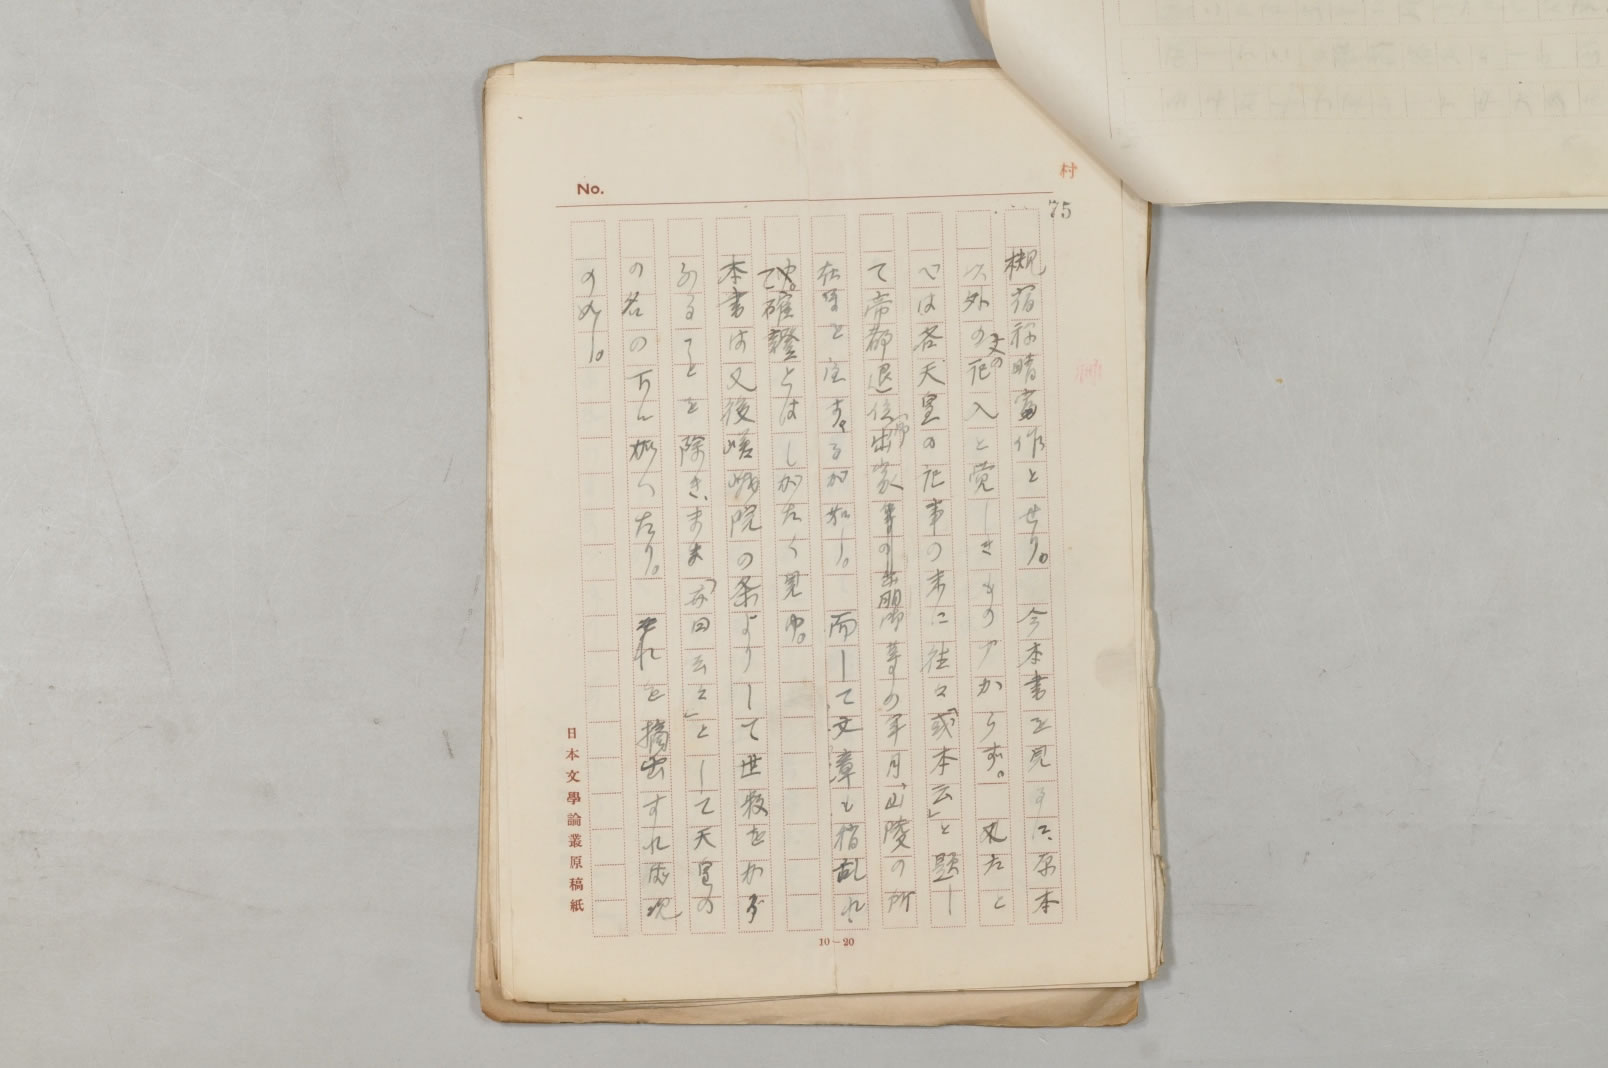 No.
村
75
槻宿祢晴富作とせり。今本書を見るに、原本
以外の文の記入と覚しきもの少からず。又たと
へば各天皇の記事の末に往々「或本云」と題し
て帝都退位出家等の崩御等の年月、山陵の所
在等を注するが如し。而して文章も錯乱れ
て確證とはしがたく見ゆ。
本書は又後嵯峨院の条よりして世数をかぞ
ふることを除き、まま「本曰云々」として天皇の
の名の下に加へたり。それを摘出すれば次
の如し。
日本文學論叢原稿紙
10-20